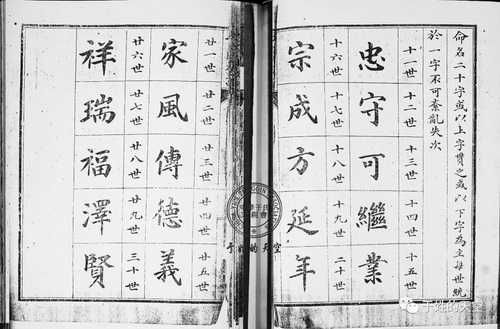 命名二十字或以上字貫之或以下字為主每世統
於一字不可紊亂失次
十一世 十二世 十三世 十四世 十五世
忠守可繼業
十六世 十七世 十八世 十九世 二十世
宗成方延年
廿一世 廿二世 廿三世 廿四世 廿五世
家風傳德義
廿六世 廿七世 廿八世 廿九世 三十世
祥瑞福澤賢
于姓的天空
于姓的天空